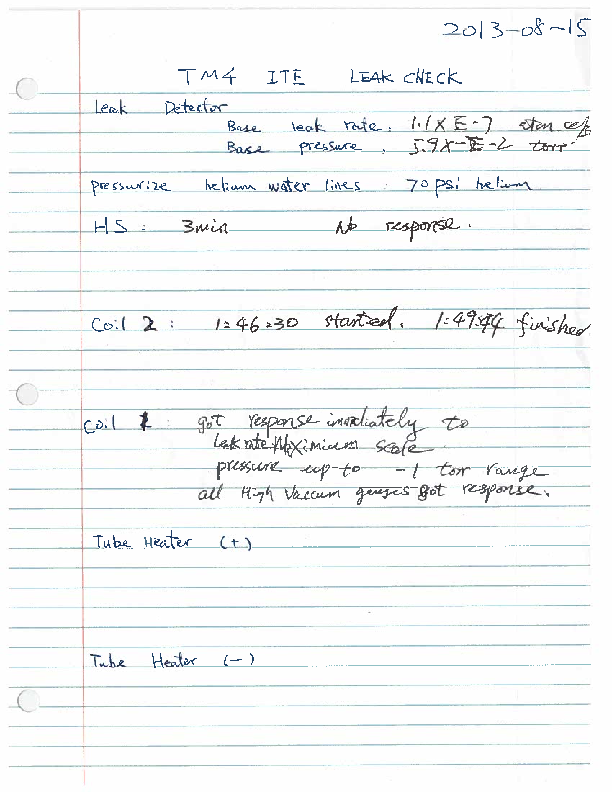 2013-08-15
TM4 ITE LEAK CHECK
Leak Detector
Base leak rate. 1.1X E-7 atm cc/s
Base pressure, 5.9X-E-2 torr
pressurize helium water lines. 70 psi helium
HS: 3min No response.
Coil 2: 1:46:30 started. 1:49:44 finished
Coil 1 got response immdiately to
leak rate Maximium scale
pressure up-to -1 torr range
all High Vaccum geuges got response.
Tube Heater (+)
Tube Heater (-)